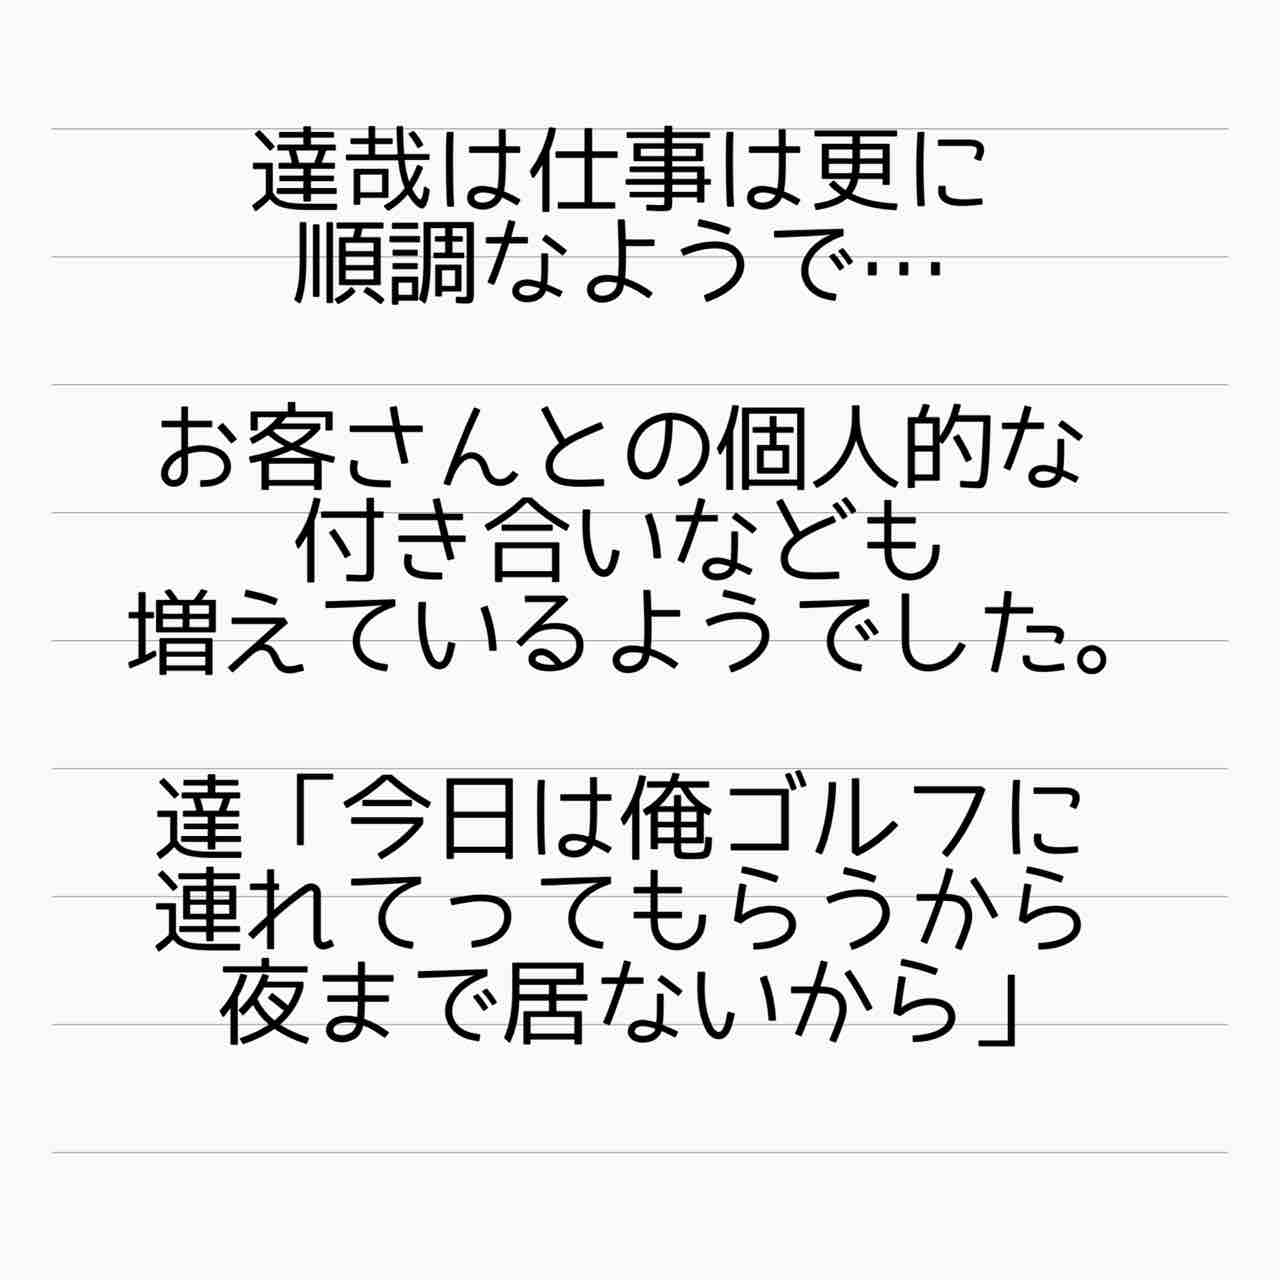 達哉は仕事は更に
順調なようで…
お客さんとの個人的な
付き合いなども
増えているようでした。
達「今日は俺ゴルフに
連れてってもらうから
夜まで居ないから」